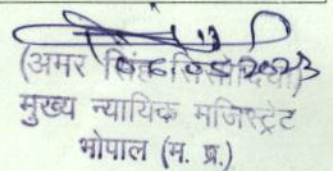 (अमर सिंह सिसोदिया)
मुख्य न्यायिक मजिस्ट्रेट
भोपाल (म. प्र.)